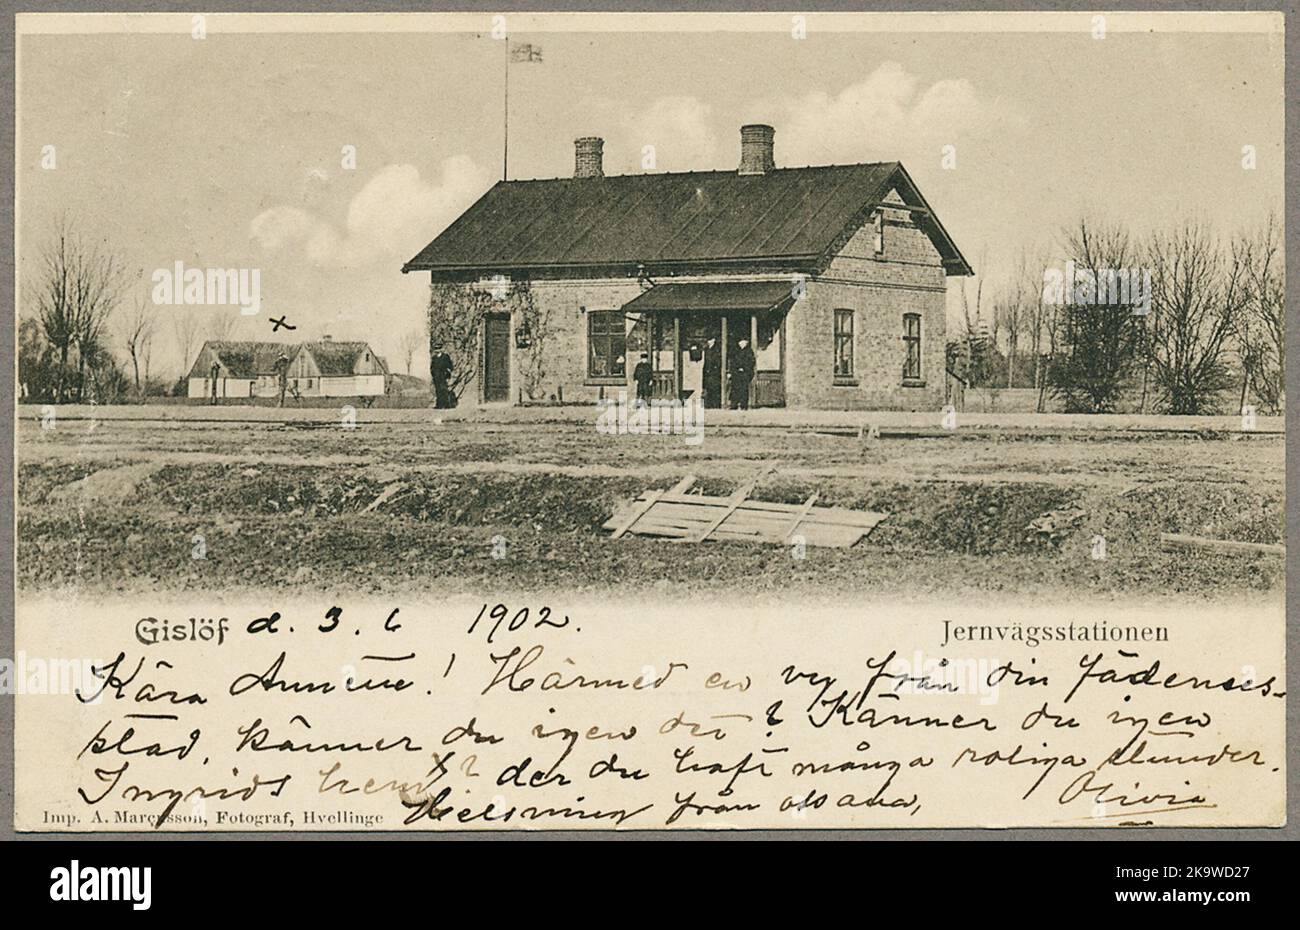 Gislöf d. 3. 6 1902.
Jernvägsstationen
Kära Annie! Härmed en vy från din födenses-
stad, känner du igen det? Känner du igen
Ingrids hem x? der du haft många roliga stunder.
Imp. A. Marcusson, Fotograf, Hvellinge
Helsning från oss alla, Olivia
alamy
Image ID: 2K9WD27
www.alamy.com